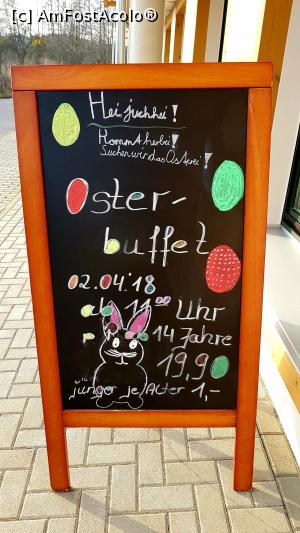 [c] AmFostAcolo®
Hei juchhei!
Kommt herbei!
Suchen wir das Osterei!
Oster-
buffet
02.04.18
ab 11⁰⁰ Uhr
14 Jahre
19,90
jünger je Alter 1,-